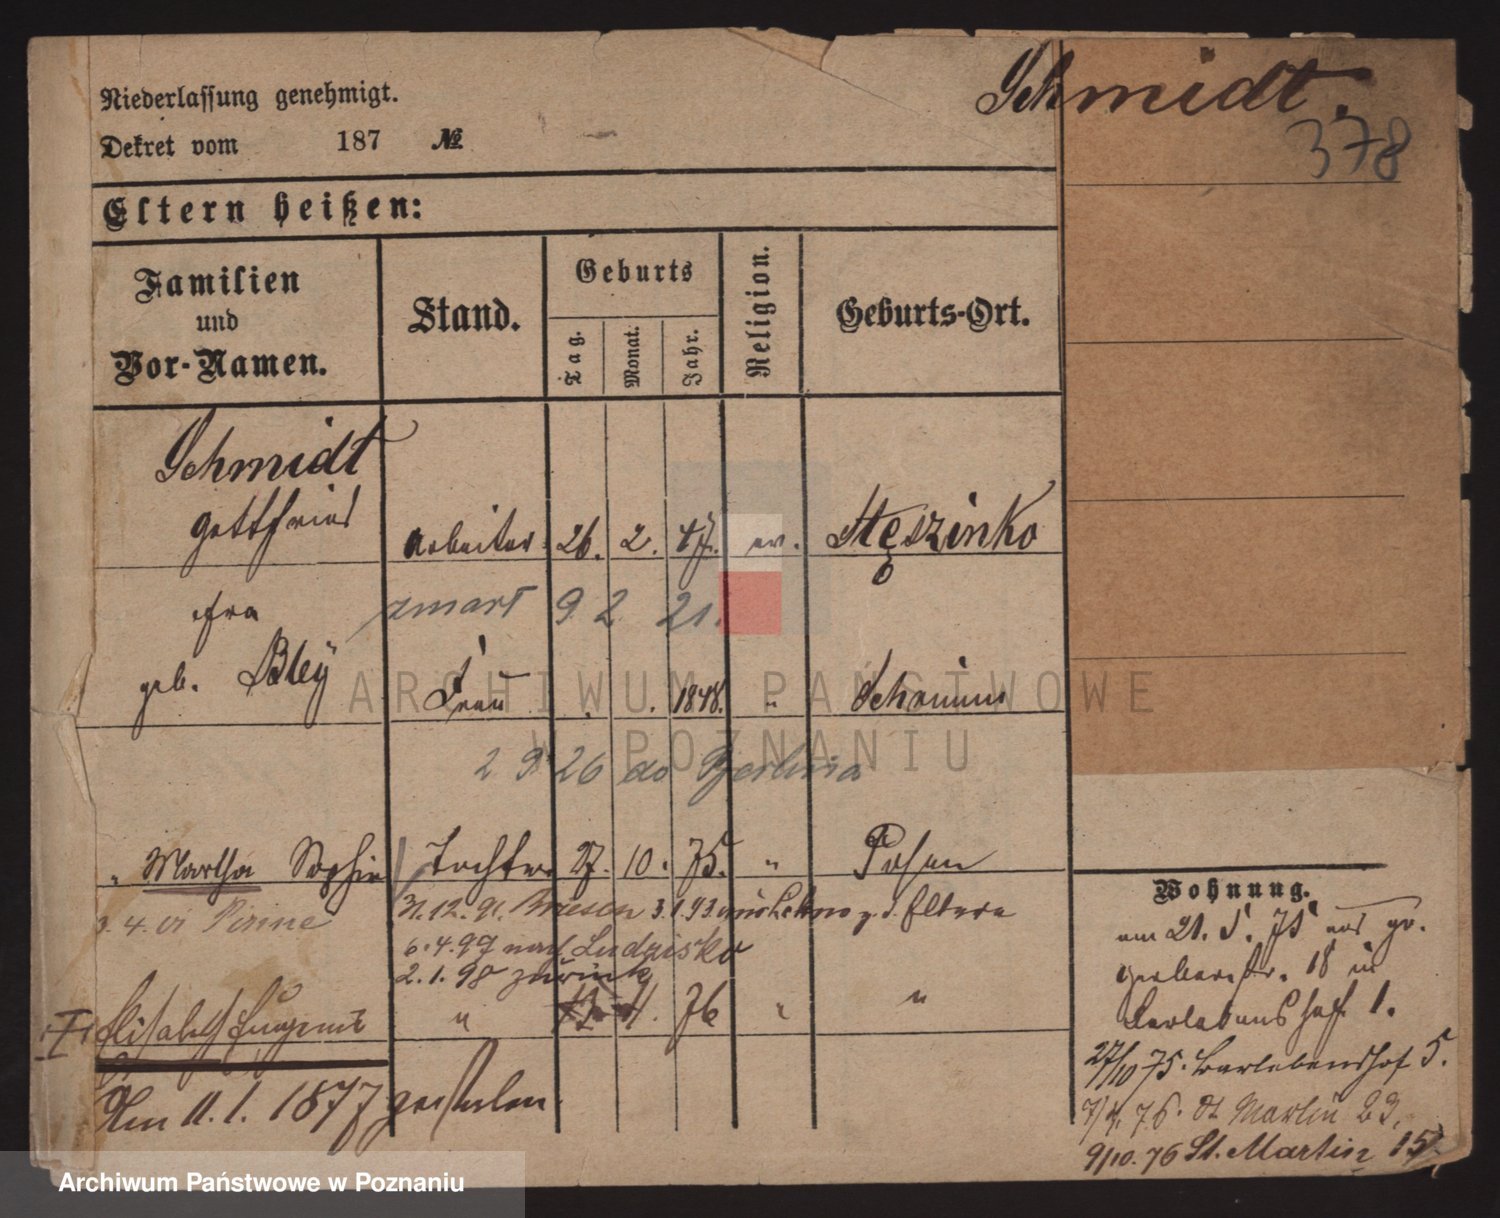 Niederlassung genehmigt.
Dekret vom 187 №
Schmidt.
378
Eltern heißen:
Familien und Vor-Namen.
Stand.
Geburts
Tag.
Monat.
Jahr.
Religion.
Geburts-Ort.
Schmidt
Gottfried Arbeiter 26. 2. 47. ev. Stęszinko
zmarł 9 2 21.
geb. Bley Frau 1848. "
2 9 26 do Berlina
" Martha Sophie Tochter 27. 10. 75. " Posen
3. 4.
31.12.91. Briesen 3.1.93. z. d. Eltern
6.4.97 nach Ludzisko
2.1.98 zurück
Elisabeth " 11. 76 " "
Am 11. 1. 1877 gestorben.
Wohnung.
am 21. 5. 75 aus gr.
Gerberstr. 18 in
Berlebenshof 1.
27/10 75. Barlebenshof 5.
7/4. 76. St Martin 23,
9/10. 76 St. Martin 15
ARCHIWUM PAŃSTWOWE
W POZNANIU
Archiwum Państwowe w Poznaniu